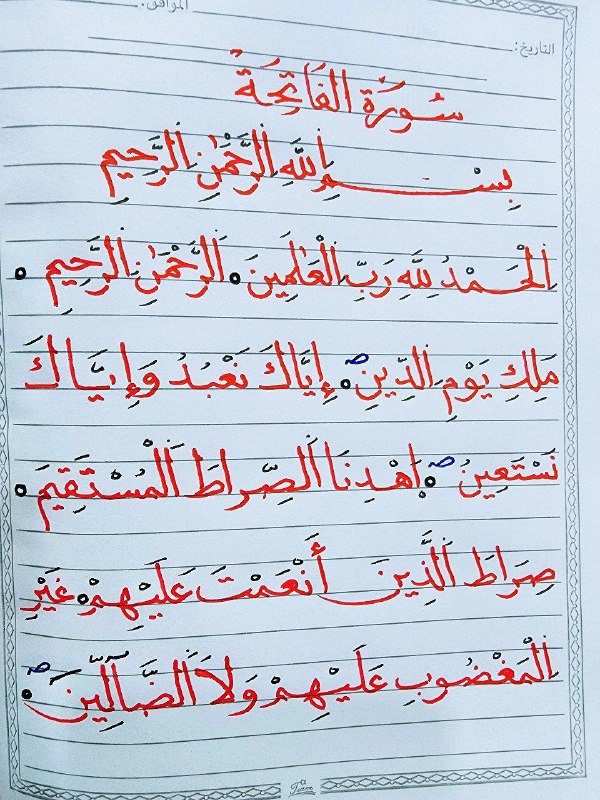 الموافق:
التاريخ:
سُورَةُ الفَاتِحَة
بِسْمِ اللَّهِ الرَّحْمَٰنِ الرَّحِيمِ
الْحَمْدُ لِلَّهِ رَبِّ الْعَٰلَمِينَ ۝ الرَّحْمَٰنِ الرَّحِيمِ ۝
مَلِكِ يَوْمِ الدِّينِ ۝ ص إِيَّاكَ نَعْبُدُ وَإِيَّاكَ
نَسْتَعِينُ ۝ ص اهْدِنَا الصِّرَاطَ الْمُسْتَقِيمَ ۝
صِرَاطَ الَّذِينَ أَنْعَمْتَ عَلَيْهِمْ ۝ غَيْرِ
الْمَغْضُوبِ عَلَيْهِمْ وَلَا الضَّآلِّينَ ۝ ص